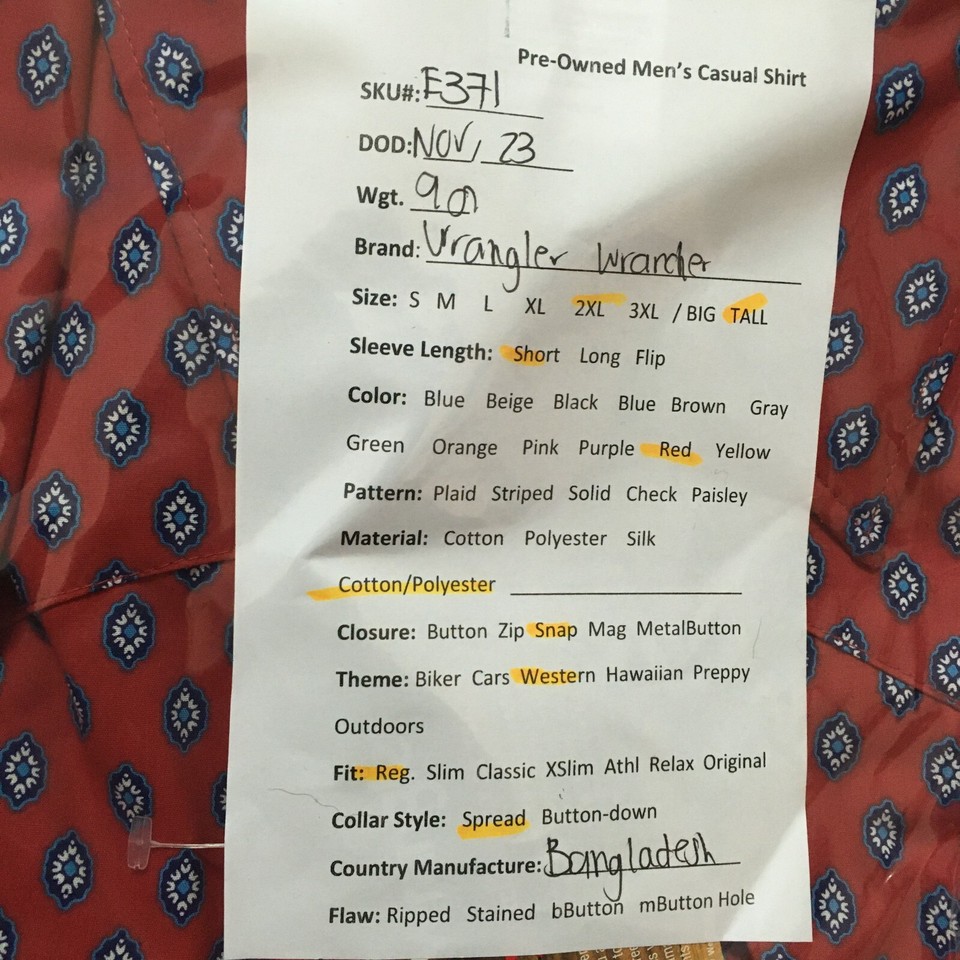 Pre-Owned Men's Casual Shirt
SKU#: F371
DOD: NOV, 23
Wgt.
Brand: Wrangler Wrancher
Size: S M L XL 2XL 3XL / BIG TALL
Sleeve Length: Short Long Flip
Color: Blue Beige Black Blue Brown Gray
Green Orange Pink Purple Red Yellow
Pattern: Plaid Striped Solid Check Paisley
Material: Cotton Polyester Silk
Cotton/Polyester
Closure: Button Zip Snap Mag MetalButton
Theme: Biker Cars Western Hawaiian Preppy
Outdoors
Fit: Reg. Slim Classic XSlim Athl Relax Original
Collar Style: Spread Button-down
Country Manufacture: Bangladesh
Flaw: Ripped Stained bButton mButton Hole